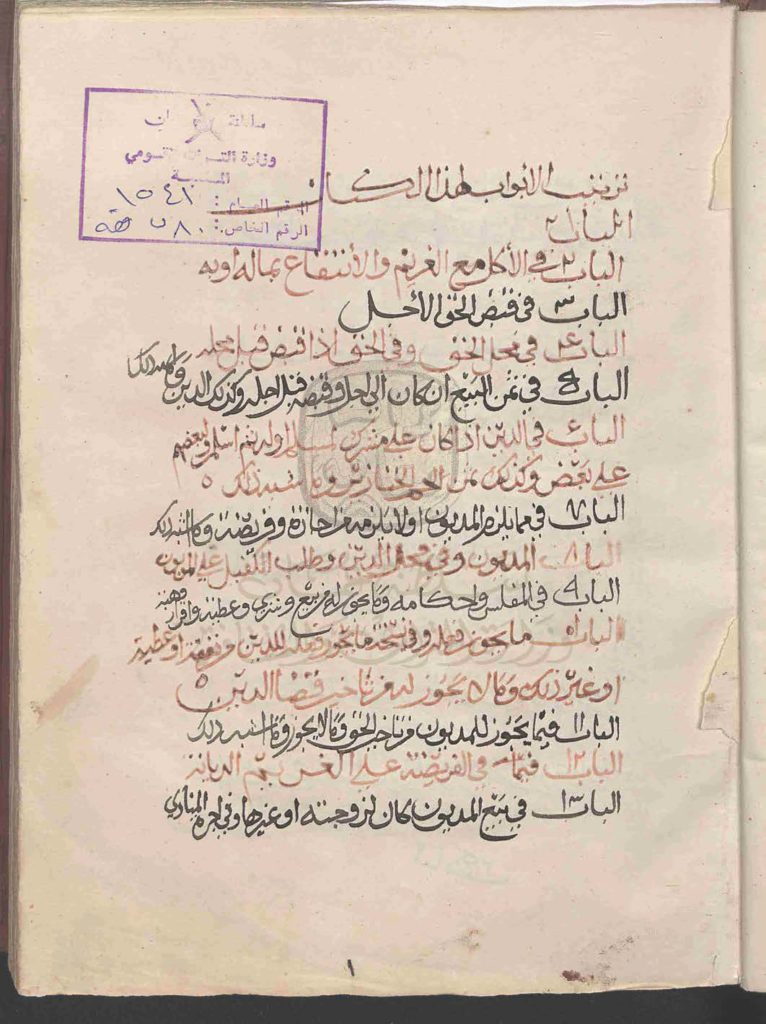 سلطنة عمان
وزارة التراث القومي
الرقم العام : ١٥٤١
الرقم الخاص : ٧٨٠ فقه
ترتيب الأبواب لهذا الكتاب
الباب ١
الباب ٢ في الأكل مع الغريم والأنتفاع بماله أوبه
الباب ٣ في قبض الحق الأجل
الباب ٤ في محل الحق وفي الحق اذا قبض قبل محله
الباب ٥ في ثمن البيع ان كان الى اجل وقبضه قبل اجله وكذلك الدين وما اشبه ذلك
الباب ٦ في الدين اذا كان على مشرك لمسلم او لم ثم اسلم وبعضهم
على بعض وكذلك ثمن الخمر الخنازير وما اشبه ذلك ٥
الباب ٧ في ما يلزم المديون اولا يلزمه من اجازة وفريضة وما اشبه ذلك
الباب ٨ المديون وفي الدين وطلب الكفيل على المديون
الباب ٩ في المفلس واحكامه وما يجوز له من بيع وشرى وعطية واقرار وهبة
الباب ١٠ ما يجوز فعله وفي ما يجوز للدين من نفقة او عطية
او غير ذلك وما لا يجوز له من تأخير قضا الدين ٥
الباب ١١ فيما يجوز للمديون من تاخير الحق وما لا يجوز وما اشبه ذلك
الباب ١٢ في الفريضة على الغريم الديانة
الباب ١٣ في بيع المديون كان لزوجته او غيرها وفي اجرة المنادي
١